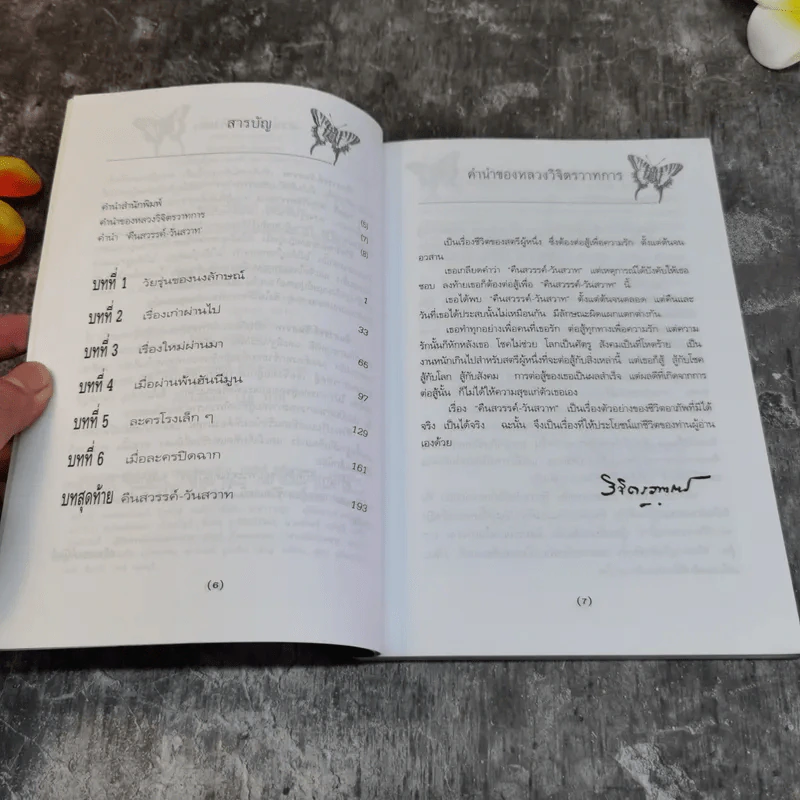 สารบัญ
คำนำสำนักพิมพ์ (5)
คำนำของหลวงวิจิตรวาทการ (7)
คำนำ "คืนสวรรค์-วันสวาท" (8)
บทที่ 1 วัยรุ่นของนงลักษณ์ 1
บทที่ 2 เรื่องเก่าผ่านไป 33
บทที่ 3 เรื่องใหม่ผ่านมา 65
บทที่ 4 เมื่อผ่านพ้นฮันนีมูน 97
บทที่ 5 ละครโรงเล็ก ๆ 129
บทที่ 6 เมื่อละครปิดฉาก 161
บทสุดท้าย คืนสวรรค์-วันสวาท 193
(6)
คำนำของหลวงวิจิตรวาทการ
เป็นเรื่องชีวิตของสตรีผู้หนึ่ง ซึ่งต้องต่อสู้เพื่อความรัก ตั้งแต่ต้นจน
อวสาน
เธอเกลียดคำว่า "คืนสวรรค์-วันสวาท" แต่เหตุการณ์ได้บังคับให้เธอ
ชอบ ลงท้ายเธอก็ต้องต่อสู้เพื่อ "คืนสวรรค์-วันสวาท" นี้
เธอได้พบ "คืนสวรรค์-วันสวาท" ตั้งแต่ต้นจนตลอด แต่คืนและ
วันที่เธอได้ประสบนั้นไม่เหมือนกัน มีลักษณะผิดแผกแตกต่างกัน
เธอทำทุกอย่างเพื่อคนที่เธอรัก ต่อสู้ทุกทางเพื่อความรัก แต่ความ
รักนั้นก็หักหลังเธอ โชคไม่ช่วย โลกเป็นศัตรู สังคมเป็นที่โหดร้าย เป็น
งานหนักเกินไปสำหรับสตรีผู้หนึ่งที่จะต่อสู้กับสิ่งเหล่านี้ แต่เธอก็สู้ สู้กับโชค
สู้กับโลก สู้กับสังคม การต่อสู้ของเธอเป็นผลสำเร็จ แต่ผลดีที่เกิดจากการ
ต่อสู้นั้น ก็ไม่ได้ให้ความสุขแก่ตัวเธอเอง
เรื่อง "คืนสวรรค์-วันสวาท" เป็นเรื่องตัวอย่างของชีวิตอาภัพที่มีได้
จริง เป็นได้จริง ฉะนั้น จึงเป็นเรื่องที่ให้ประโยชน์แก่ชีวิตของท่านผู้อ่าน
เองด้วย
(7)